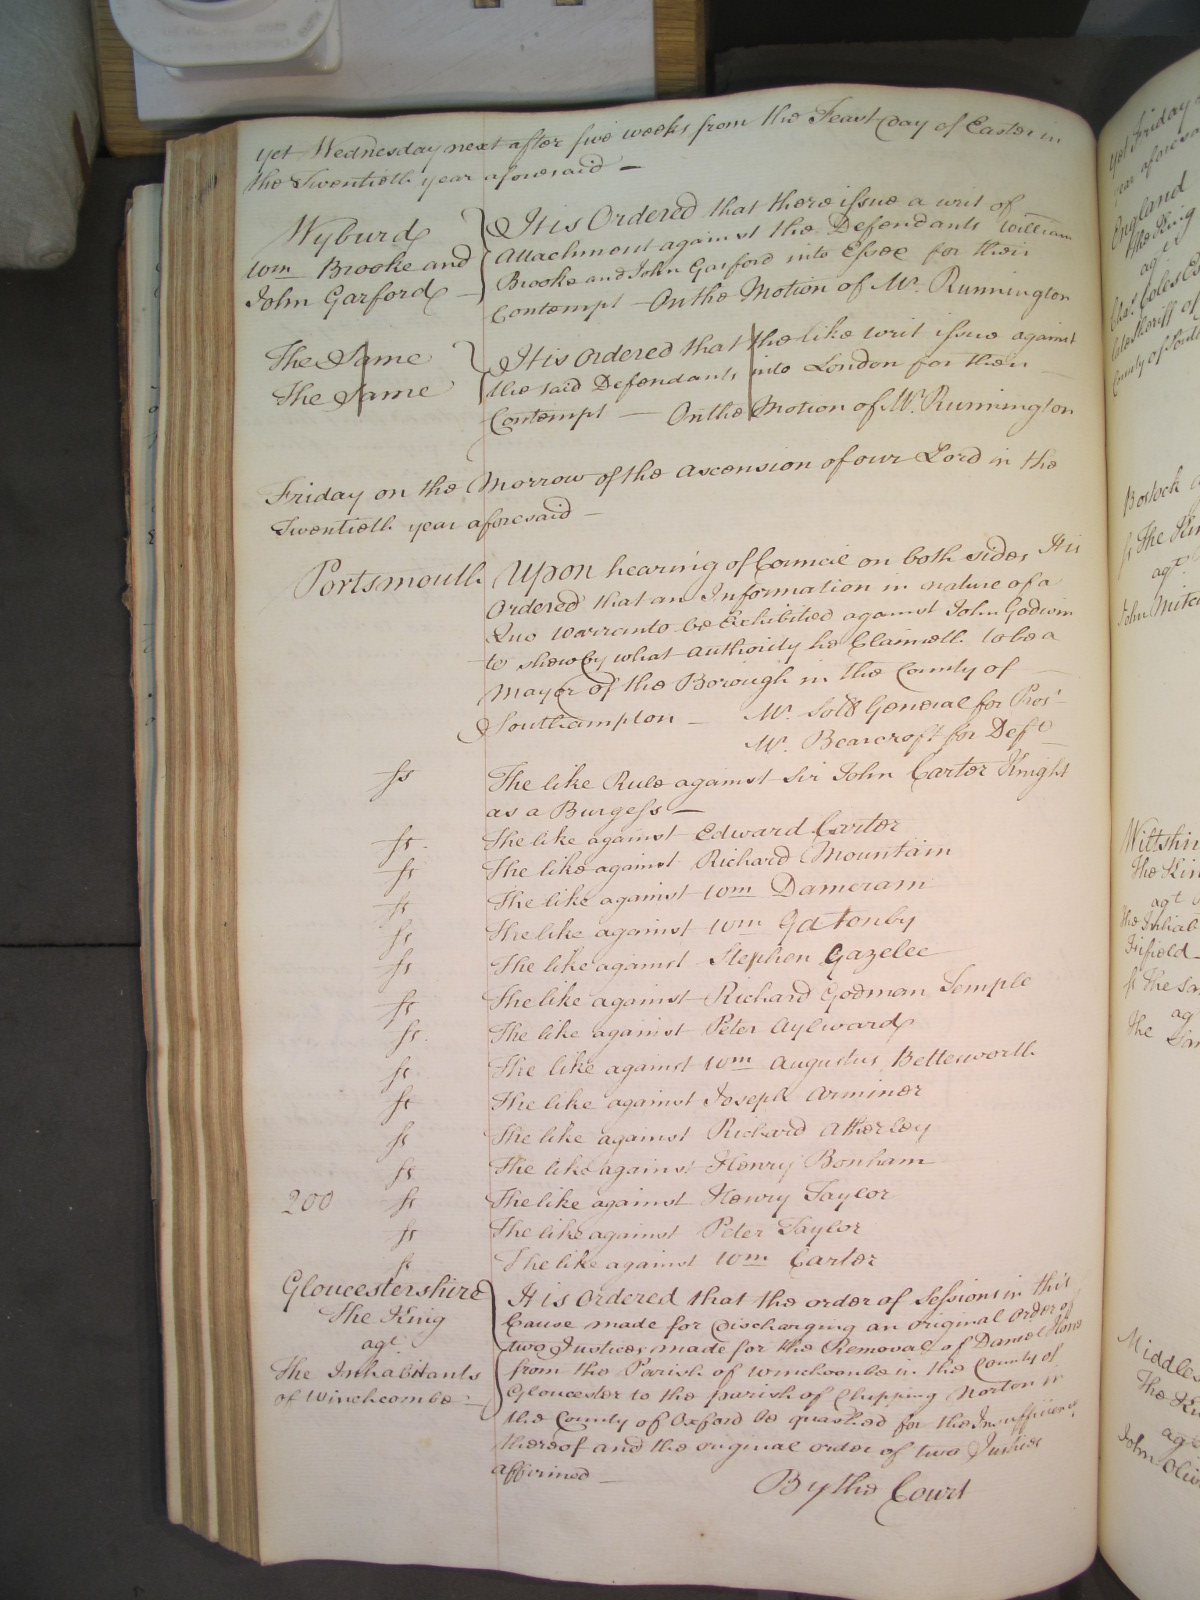 yet Wednesday next after five weeks from the Feast Day of Easter in
the Twentieth year aforesaid —
Wyburd
Wm Brooke and
John Garford
It is Ordered that there issue a writ of
Attachment against the Defendants William
Brooke and John Garford into Essex for their
Contempt — On the Motion of Mr. Runnington
The Same
The Same
It is Ordered that the like writ issue against
the said Defendants into London for their
Contempt — On the Motion of Mr. Runnington
Friday on the Morrow of the Ascension of our Lord in the
Twentieth year aforesaid —
Portsmouth
Upon hearing of Council on both sides It is
Ordered that an Information in nature of a
Quo Warranto be Exhibited against John Godwin
to shew by what Authority he Claimeth to be a
Mayor of the Borough in the County of
Southampton — Mr. Sollr General for Pros.
Mr. Bearcroft for Deft
ss The like Rule against Sir John Carter Knight
as a Burgess —
ss The like against Edward Carter
ss The like against Richard Mountain
ss The like against Wm Dameram
ss The like against Wm Gatonby
ss The like against Stephen Gazelee
ss The like against Richard Godman Temple
ss The like against Peter Aylward
ss The like against Wm Augustus Bettesworth
ss The like against Joseph Arminer
ss The like against Richard Atherley
ss The like against Henry Bonham
200 ss The like against Henry Taylor
ss The like against Peter Taylor
ss The like against Wm Carter
Gloucestershire
The King
agt
The Inhabitants
of Winchcombe
It is Ordered that the order of Sessions in this
Cause made for Discharging an original Order of
two Justices made for the Removal of Daniel
from the Parish of Winchcombe in the County of
Gloucester to the parish of Chipping Norton in
the County of Oxford be quashed for the Insufficiency
thereof and the original order of two Justices
affirmed —
By the Court
yet Friday
year aforesaid
England
The King
agt
Chas. Coles
late Sheriff of
County of
Bostock
ss The Kin
agt
John Mitc
Wiltshir
The Kin
agt
the Inhab
Fifield
ss The Sa
ag
The San
Middles
The Ki
agt
John Oliv